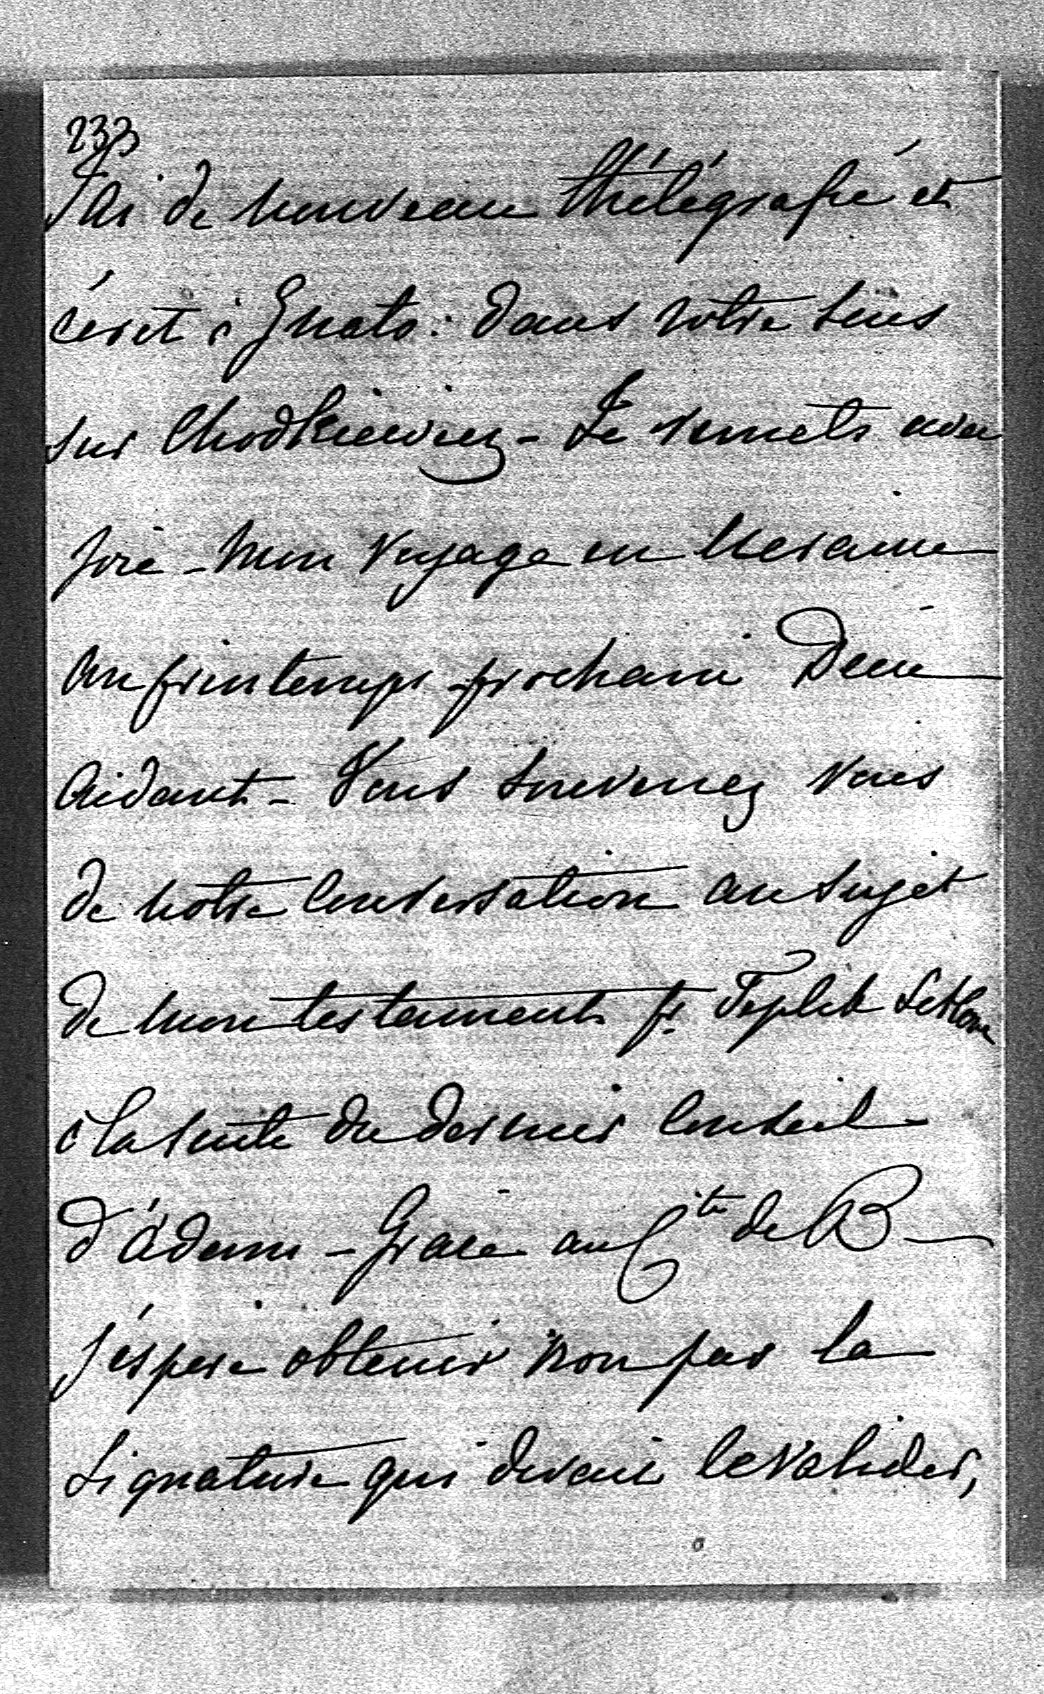 233
J'ai de nouveau théłégrafié et
écrit à Gnato: dans votre sens
sur Chodkiewicz - Je remets avec
joie - mon voyage en Ucraine
au printemps prochain Dieu
aidant - Vous souvenez vous
de notre conversation au sujet
de mon testament pr. Teplik Sitkow
à la suite du dernier conseil
d'Adam - Grace au Cte de B -
j'éspere obtenir non pas la
signature qui devait le valider,